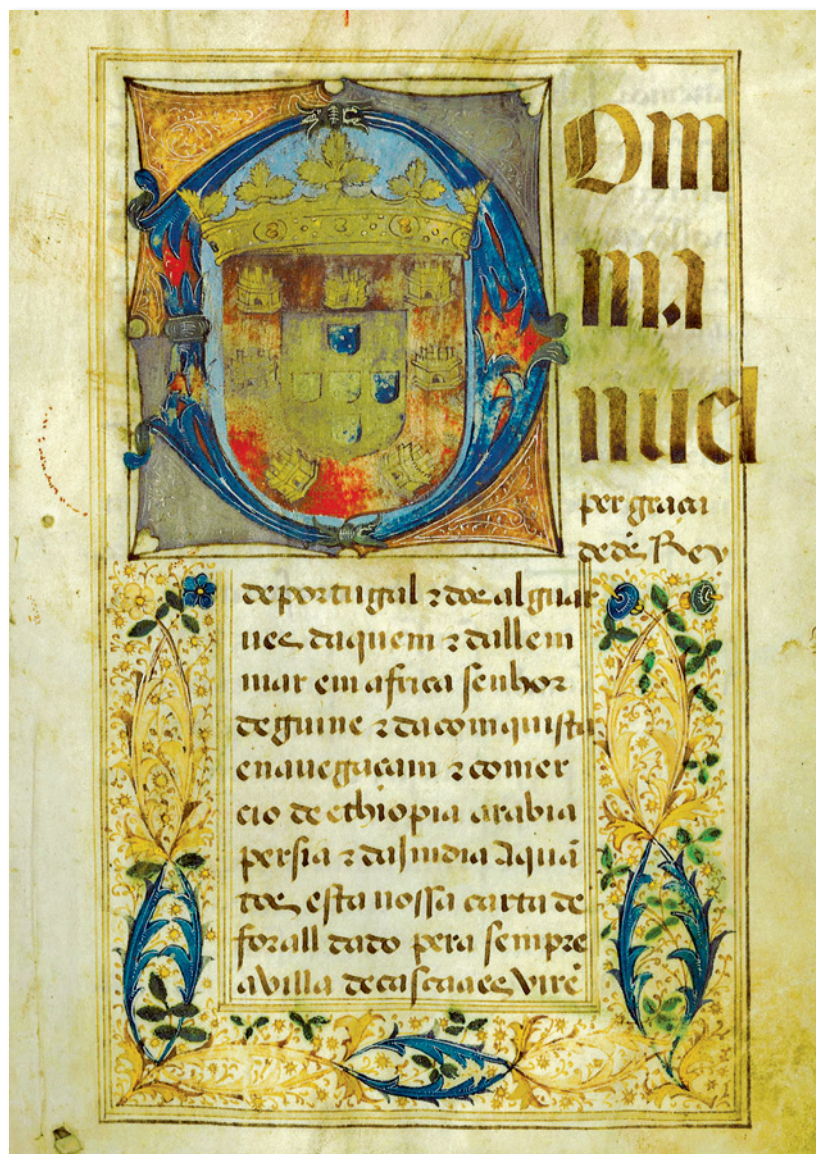 Dom
ma
nuel
per graça
de dẽ Rey
de portugal ⁊ dos algar
ues daquem ⁊ dallem
mar em africa senhor
de guine ⁊ da comquista
e nauegaçam ⁊ comer
cio de ethiopia arabia
persia ⁊ da Jndia A quã
tos esta nossa carta de
forall dado pera sempre
a villa de cascaaes virẽ